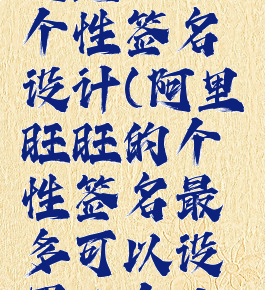 个性签名
设计(阿里
旺旺的个
性签名最
多可以设